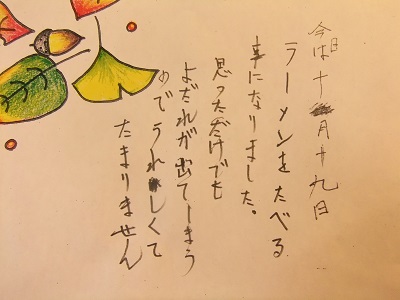 今日は十月十九日
ラーメンをたべる
事になりました。
思っただけでも
よだれが出てしまう
のでうれしくて
たまりません